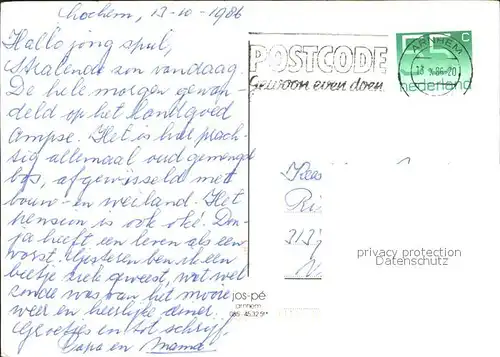 Lochem, 13-10-1986
Hallo jong spul,
Stralende zon vandaag.
De hele morgen gewan-
deld op het landgoed
Ampse. Het is hier prach-
tig allemaal oud gemengd
bos, afgewisseld met
bouw- en weiland. Het
pension is ook oké. Don-
ja heeft een leven als een
vorst. Gisteren ben ik een
beetje ziek geweest, wat wel
zonde was van het mooie
weer en heerlijke diner.
Groetjes en tot schrijfs,
Papa en Mama
POSTCODE
Gewoon even doen
ARNHEM
13 X 86-20
C
nederland
Ri
313
privacy protection
Datenschutz
jos-pé
arnhem
085-453291